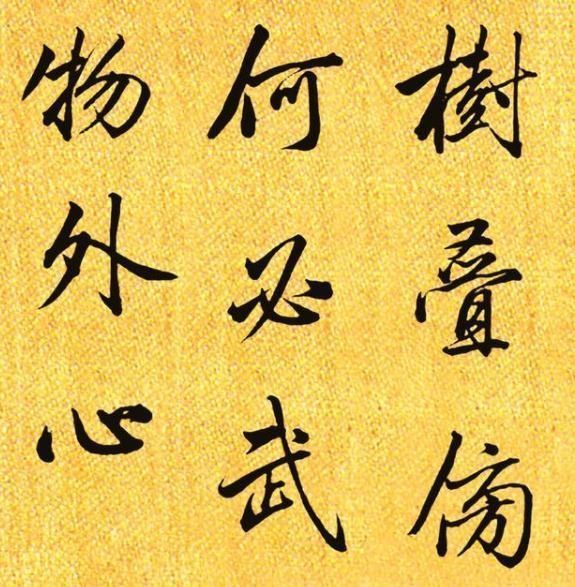 樹疊傍
何必武
物外心